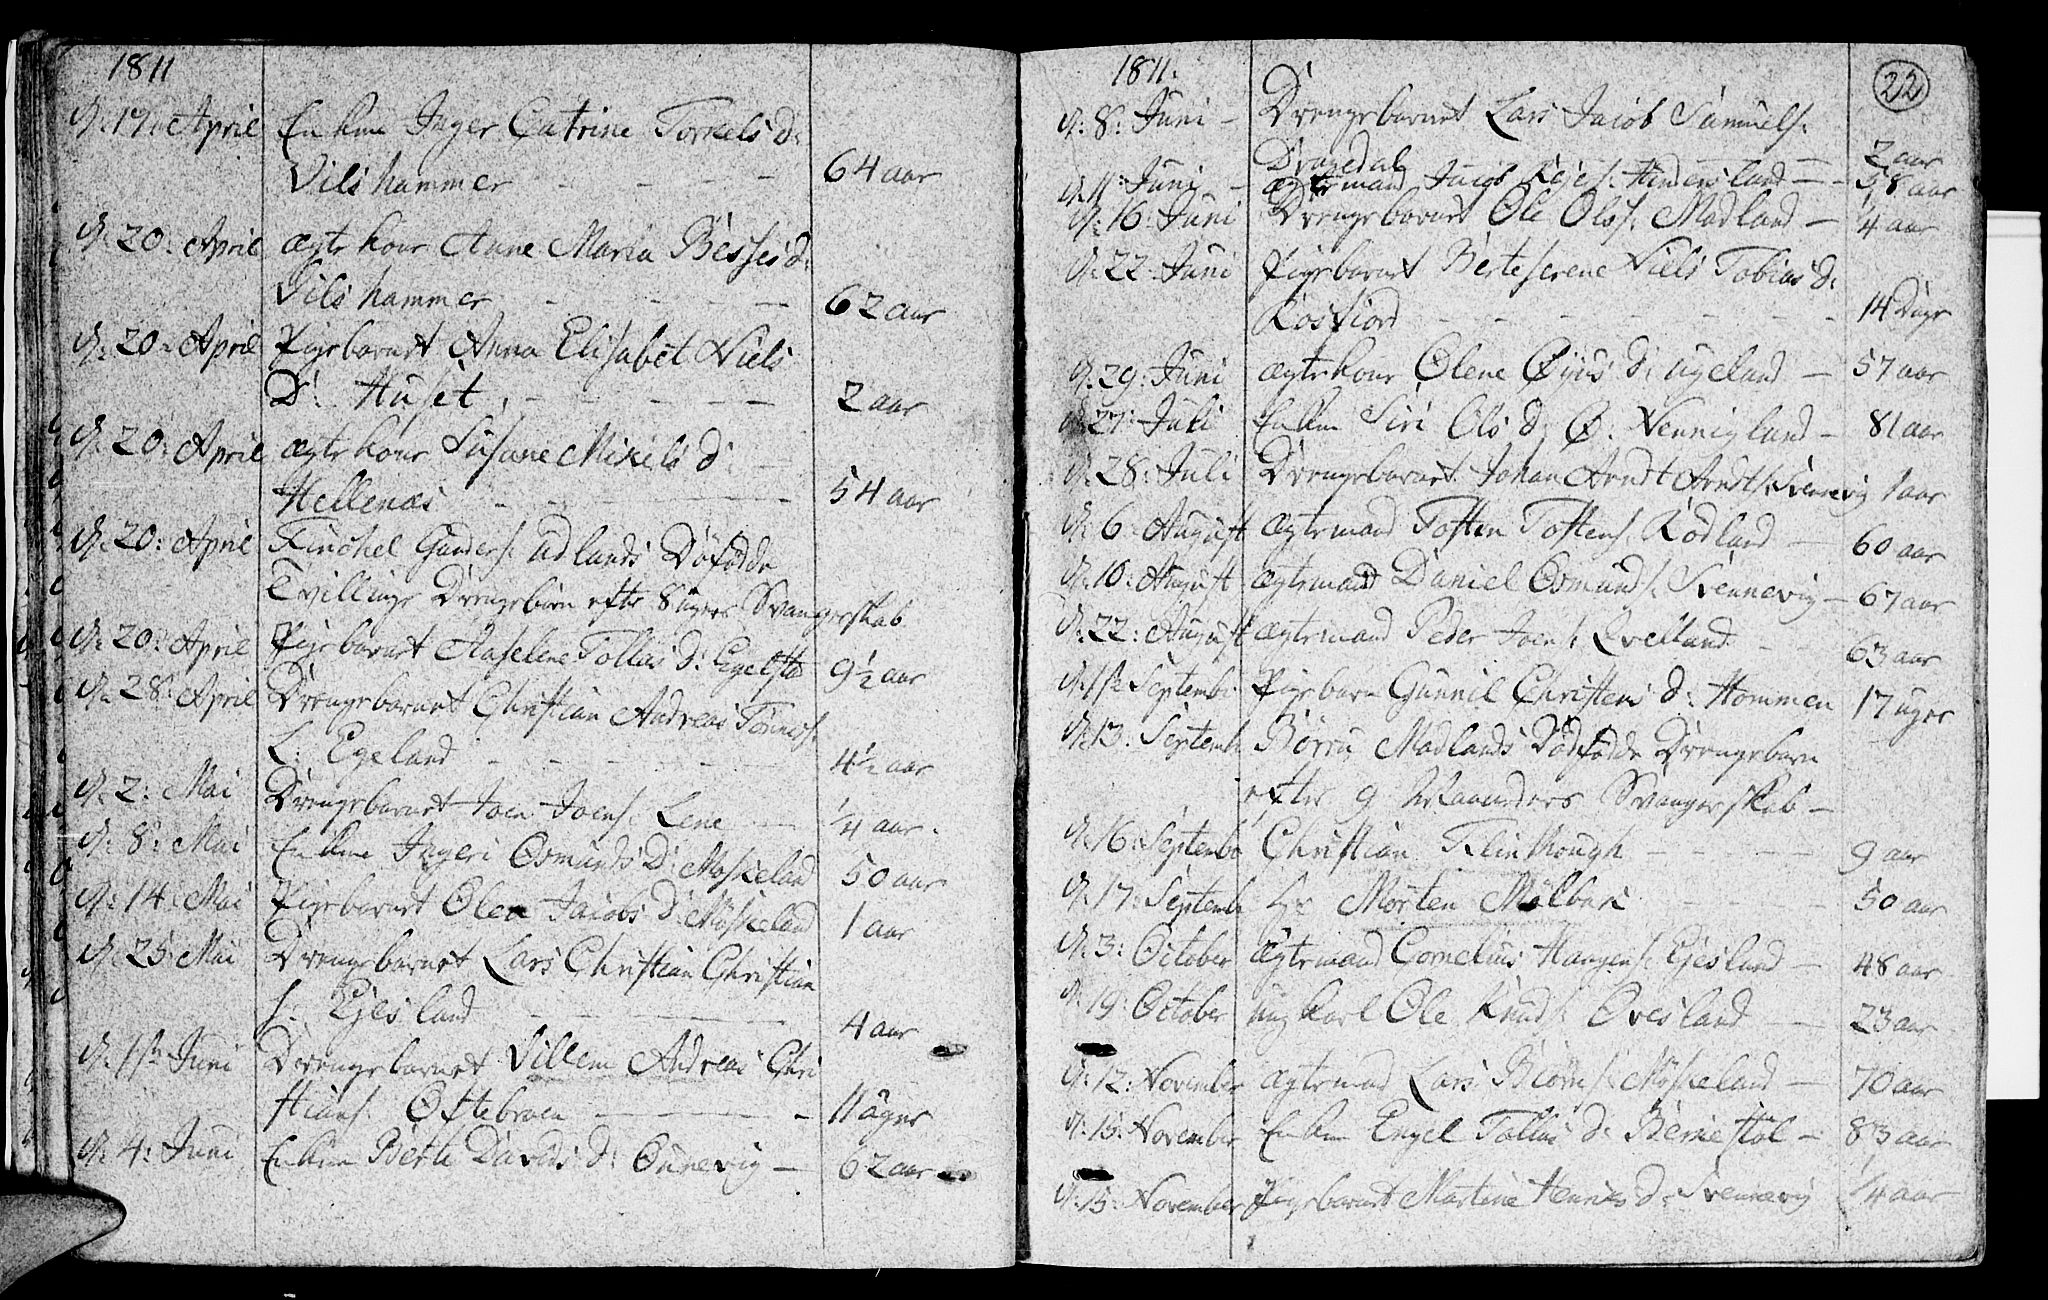 1811
d: 19: April Enken Inger Catrine Torkels d:
Vilshammer - - - - 64 aar
d: 20: April ægte kone Anne Maria Besses d:
Vilshammer - - - - 62 aar
d: 20: April Pigebarnet Anna Elisabet Niels
D: Huset - - - - 2 aar
d: 20: April ægte kone Susane Mikels d: -
Hellenæs - - - - 54 aar
d: 20: April Gunders: Udlands Døfødde
Tvillinge Drengebørn efter 8 ugers Svangerskab
d: 20: April Pigebarnet Aaselene Tollas d: Egelsta 9½ aar
d: 28: April Drengebarnet Christian Andreas Tønnes:
L: Egeland - - - - 4½ aar
d: 2: Mai Drengebarnet Joen Joens: Lene - ¼ aar.
d: 8: Mai Enken Ingeri Osmunds D: Møskeland 50 aar
d: 14: Mai Pigebarnet Olea Jacobs d: Møskeland 1 aar
d: 25: Mai Drengebarnet Lars Christian Christian
s: Ejesland - - - - 4 aar
d: 1ste Juni Drengebarnet Villem Andreas Chri
stians: Oftebroen - - - - 11 uger
d: 4: Juni Enken Berte Davids d: Øunevig - 62 aar
1811.
22
d: 8: Juni - Drengebarnet Lars Jacob Samuels:
Dragedal - - 2 aar
d: 11: Juni - ægtemand Jacob Hindersland - - 58 aar
d: 16: Juni Drengebarnet Ole Ols: Madland - ¼ aar
d: 22: Juni Pigebarnet Berteserene Niels Tobias d:
Rosfiord - - - - 14 Dage
d: 29: Juni ægte kone Olene Øjus d: ugeland - 57 aar
d: 27: Juli Enken Siri Ols d: Ø: Vennigland - 81 aar
d: 28: Juli Drengebarnet Johan Arndt Arndts: Svennevig 1 aar
d: 6: August ægtemand Tosten Tostens: Rødland - 60 aar
d: 10: August ægtemand Daniel Osmunds: Svennevig - 67 aar
d: 22: August ægtemand Peder Joens: Qvelland - - 63 aar
d: 1ste Septembr Pigebarn Gunnil Christens d: Hommen 17 uger
d: 13: Septemb Børru Madlands Dødfødde Drengebarn
efter 9 Maaneders Svangerskab -
d: 16: Septembr Christian Flinthough - - - - 9 aar
d: 17: Septembr Hr Morten Mølbak - - - - 50 aar
d: 3: October Ægtemand Cornelius Haagens: Ejesland - 48 aar
d: 19: October ung karl Ole Knuds: Øvesland - 23 aar
d: 12: November ægtemand Lars Biørns: Møskeland - 70 aar
d: 15: November Enken Engel Tollas d: Bernestøl - 83 aar
d: 15: November Pigebarnet Martine Henriks d: Svennevig ¼ aar